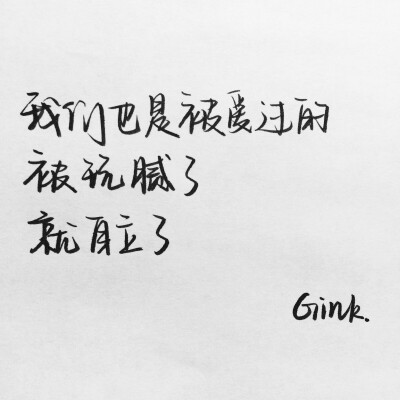 我们也是被爱过的
被玩腻了
就自立了
Gink.